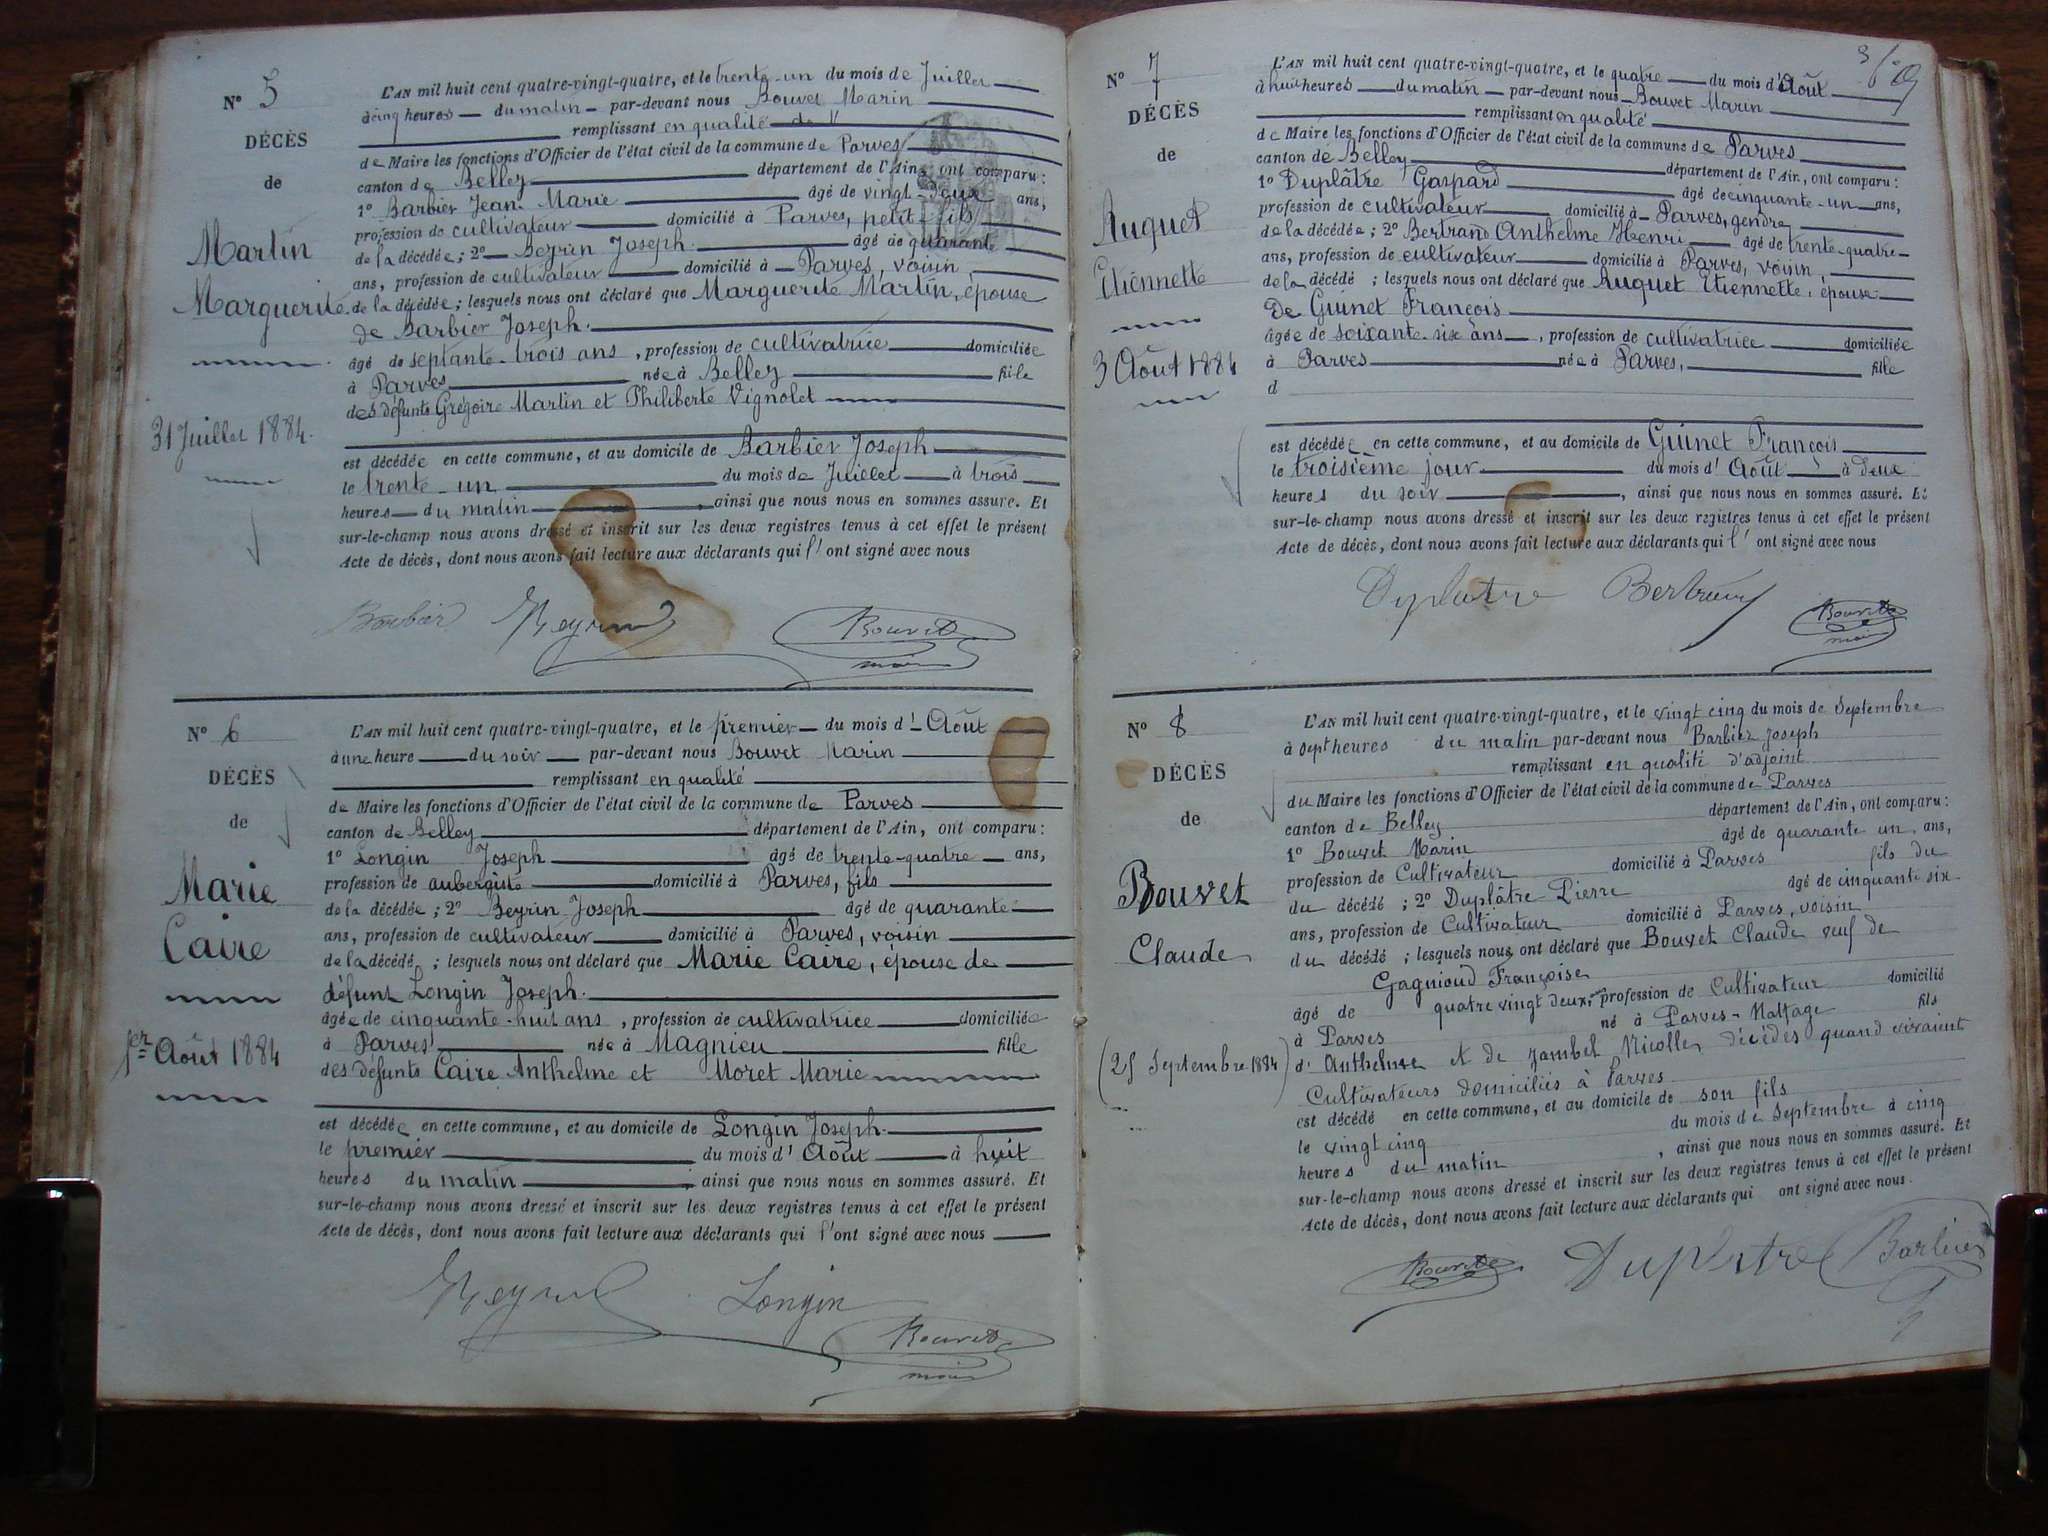 N° 5
DÉCÈS
de
Martin
Marguerite
31 Juillet 1884.
L'AN mil huit cent quatre-vingt-quatre, et le trente-un du mois de Juillet
à cinq heures du matin par-devant nous Bouvet Marin
remplissant en qualité
de Maire les fonctions d'Officier de l'état civil de la commune de Parves
canton de Belley département de l'Ain, ont comparu :
1° Barbier Jean Marie âgé de vingt-deux ans,
profession de cultivateur domicilié à Parves, petit-fils
de la décédée ; 2° Beyrin Joseph âgé de quarante
ans, profession de cultivateur domicilié à Parves, voisin,
de la décédée ; lesquels nous ont déclaré que Marguerite Martin, épouse
de Barbier Joseph.
âgé de septante-trois ans, profession de cultivatrice domiciliée
à Parves née à Belley fille
des défunts Grégoire Martin et Philiberte Vignolet
est décédée en cette commune, et au domicile de Barbier Joseph
le trente-un du mois de Juillet à trois
heures du matin, ainsi que nous nous en sommes assuré. Et
sur-le-champ nous avons dressé et inscrit sur les deux registres tenus à cet effet le présent
Acte de décès, dont nous avons fait lecture aux déclarants qui l'ont signé avec nous
Barbier Beyrin Bouvet
maire
N° 6
DÉCÈS
de
Marie
Caire
1er Août 1884
L'AN mil huit cent quatre-vingt-quatre, et le premier du mois d'Août
à une heure du soir par-devant nous Bouvet Marin
remplissant en qualité
de Maire les fonctions d'Officier de l'état civil de la commune de Parves
canton de Belley département de l'Ain, ont comparu :
1° Longin Joseph âgé de trente-quatre ans,
profession de aubergiste domicilié à Parves, fils
de la décédée ; 2° Beyrin Joseph âgé de quarante
ans, profession de cultivateur domicilié à Parves, voisin
de la décédé ; lesquels nous ont déclaré que Marie Caire, épouse de
défunt Longin Joseph.
âgée de cinquante-huit ans, profession de cultivatrice domiciliée
à Parves née à Magnieu fille
des défunts Caire Anthelme et Moret Marie
est décédée en cette commune, et au domicile de Longin Joseph.
le premier du mois d'Août à huit
heures du matin, ainsi que nous nous en sommes assuré. Et
sur-le-champ nous avons dressé et inscrit sur les deux registres tenus à cet effet le présent
Acte de décès, dont nous avons fait lecture aux déclarants qui l'ont signé avec nous
Beyrin Longin Bouvet
maire
N° 7
DÉCÈS
de
Ruquet
Etiennette
3 Août 1884
L'AN mil huit cent quatre-vingt-quatre, et le quatre du mois d'Août
à huit heures du matin par-devant nous Bouvet Marin
remplissant en qualité
de Maire les fonctions d'Officier de l'état civil de la commune de Parves
canton de Belley département de l'Ain, ont comparu :
1° Duplâtre Gaspard âgé de cinquante-un ans,
profession de cultivateur domicilié à Parves, gendre
de la décédée ; 2° Bertrand Anthelme Henri âgé de trente-quatre
ans, profession de cultivateur domicilié à Parves, voisin,
de la décédé ; lesquels nous ont déclaré que Ruquet Etiennette, épouse
de Guinet François
âgée de soixante-six ans, profession de cultivatrice domiciliée
à Parves née à Parves, fille
d
est décédée en cette commune, et au domicile de Guinet François
le troisième jour du mois d'Août à deux
heures du soir, ainsi que nous nous en sommes assuré. Et
sur-le-champ nous avons dressé et inscrit sur les deux registres tenus à cet effet le présent
Acte de décès, dont nous avons fait lecture aux déclarants qui l'ont signé avec nous
Duplatre Bertrand Bouvet
maire
N° 8
DÉCÈS
de
Bouvet
Claude
(25 Septembre 1884)
L'AN mil huit cent quatre-vingt-quatre, et le vingt cinq du mois de Septembre
à sept heures du matin par-devant nous Barbier Joseph
remplissant en qualité d'adjoint
du Maire les fonctions d'Officier de l'état civil de la commune de Parves
canton de Belley département de l'Ain, ont comparu :
1° Bouvet Marin âgé de quarante un ans,
profession de Cultivateur domicilié à Parves fils du
du décédé ; 2° Duplâtre Pierre âgé de cinquante six
ans, profession de Cultivateur domicilié à Parves, voisin
du décédé ; lesquels nous ont déclaré que Bouvet Claude veuf de
Gagnioud Françoise
âgé de quatre vingt deux ans profession de Cultivateur domicilié
à Parves né à Parves-Nattage fils
d'Anthelme et de Jambet Nicolle, décédés quand vivaient
Cultivateurs domiciliés à Parves
est décédé en cette commune, et au domicile de son fils
le vingt cinq du mois de Septembre à cinq
heures du matin, ainsi que nous nous en sommes assuré. Et
sur-le-champ nous avons dressé et inscrit sur les deux registres tenus à cet effet le présent
Acte de décès, dont nous avons fait lecture aux déclarants qui ont signé avec nous.
Bouvet Duplatre Barbier